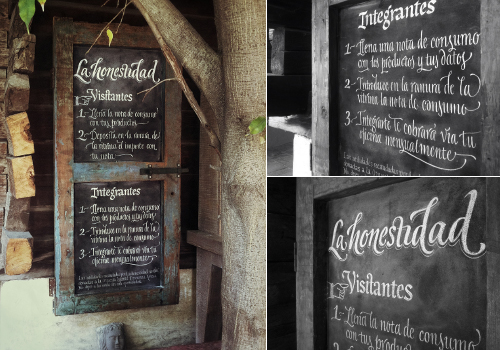 La honestidad
Visitantes
1.- Llena una nota de consumo
con tus productos
2.- Deposita en la ranura de
la vitrina el importe con
tu nota
Integrantes
1.- Llena una nota de consumo
con tus productos y tus datos
2.- Introduce en la ranura de la
vitrina la nota de consumo
3.- Integrarte te cobrará vía tu
oficina mensualmente
Integrantes
1.- Llena una nota de consumo
con tus productos y tus datos
2.- Introduce en la ranura de la
vitrina la nota de consumo
3.- Integrarte te cobrará vía tu
oficina mensualmente
La honestidad
Visitantes
1.- Llena una nota de consumo
con tus